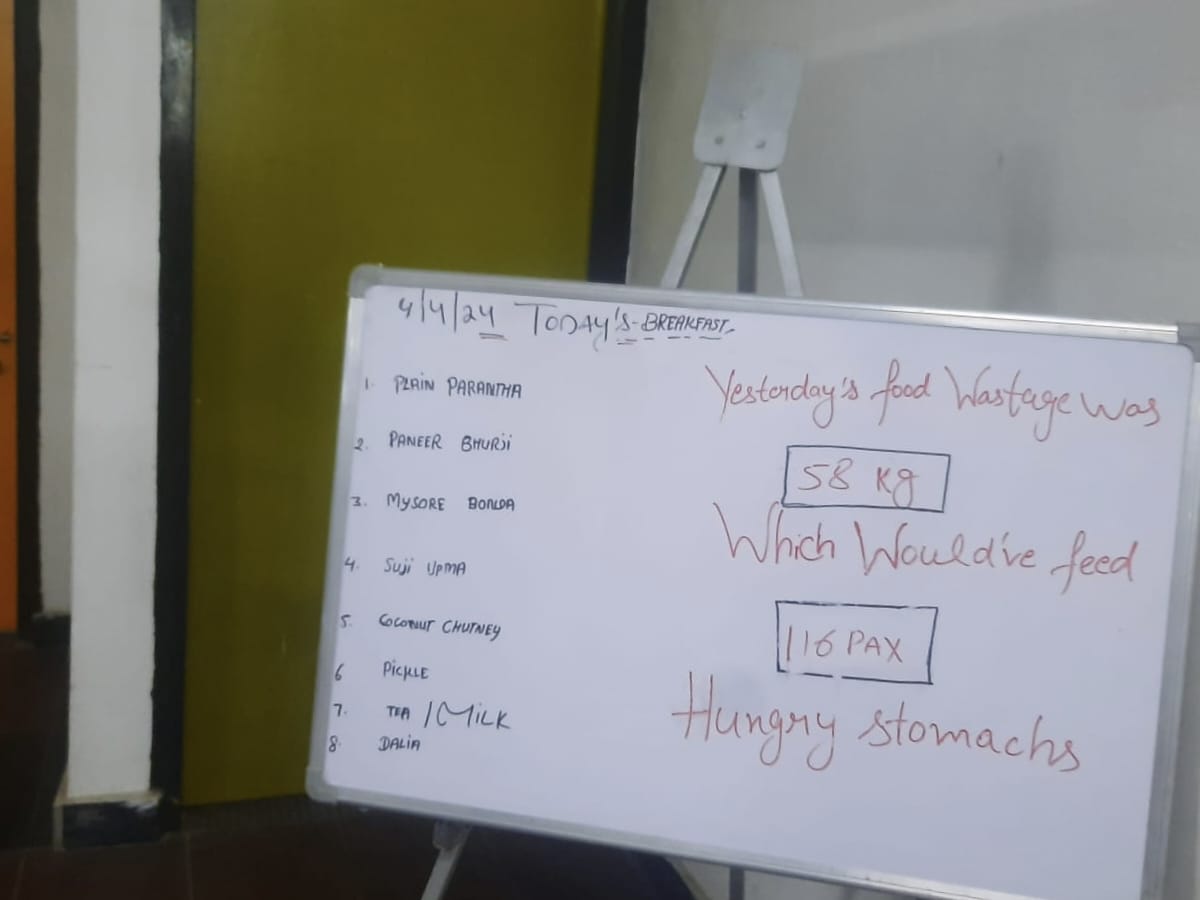 4/4/24 TODAY'S-BREAKFAST
1. PLAIN PARANTHA
2. PANEER BHURJi
3. MYSORE BONDA
4. SUJi UPMA
5. COCONUT CHUTNEY
6 PiCKLE
7. TEA /MiLK
8. DALiA
Yesterday's food Wastage was
58 Kg
Which Would've feed
116 PAX
Hungry stomachs